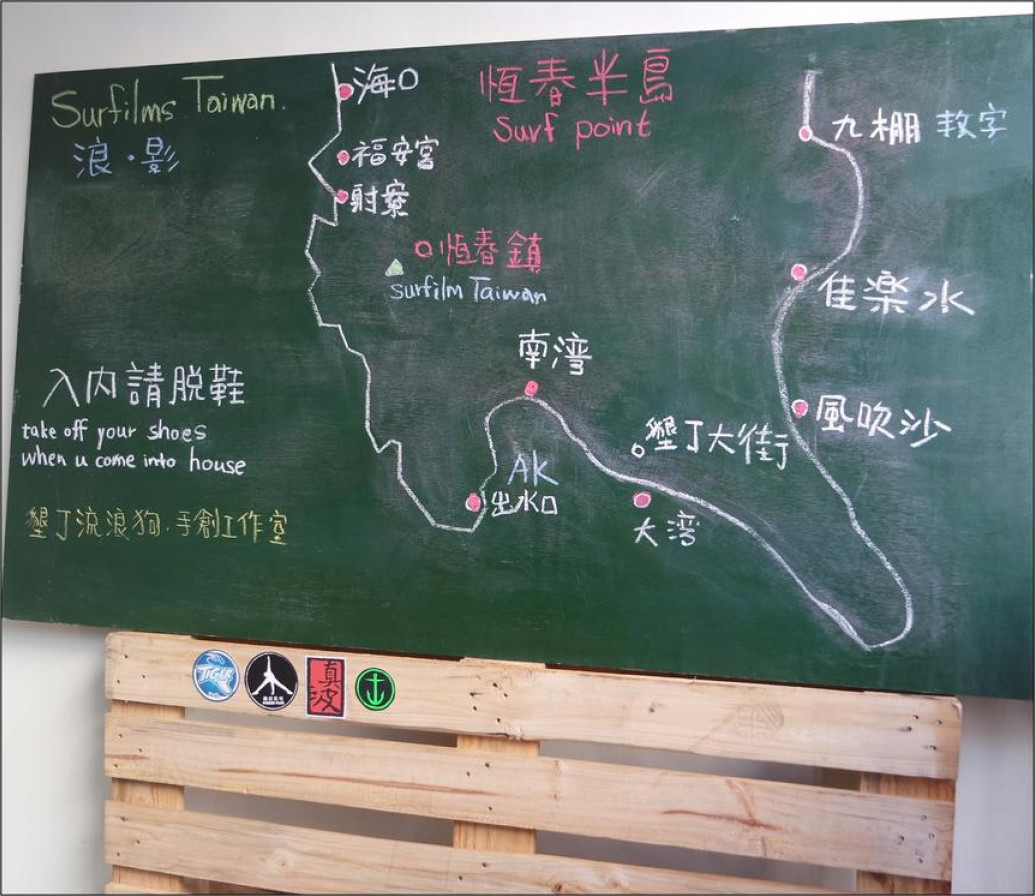 Surfilms Taiwan.
浪·影
恆春半島
Surf point
海口
福安宮
射寮
恆春鎮
surfilm Taiwan
九棚 教字
佳楽水
風吹沙
南湾
墾丁大街
大湾
AK
出水口
入内請脱鞋
take off your shoes
when u come into house
墾丁流浪狗·手創工作室
TIGER
真波